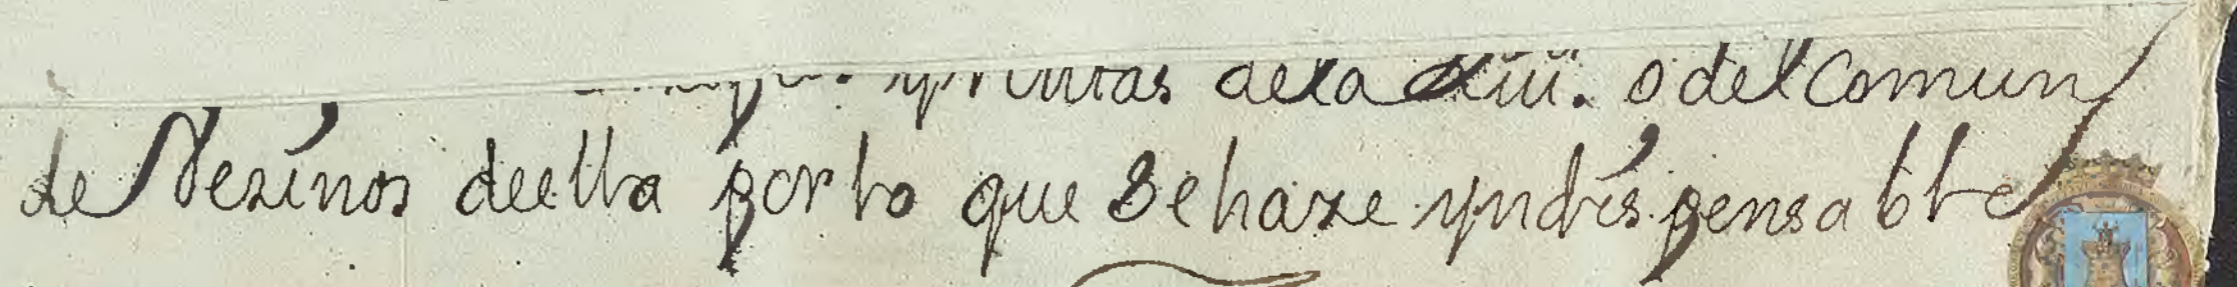 y rentas de la Ciu. o del Comun
de Vezinos de ella por lo que se haze yndispensable